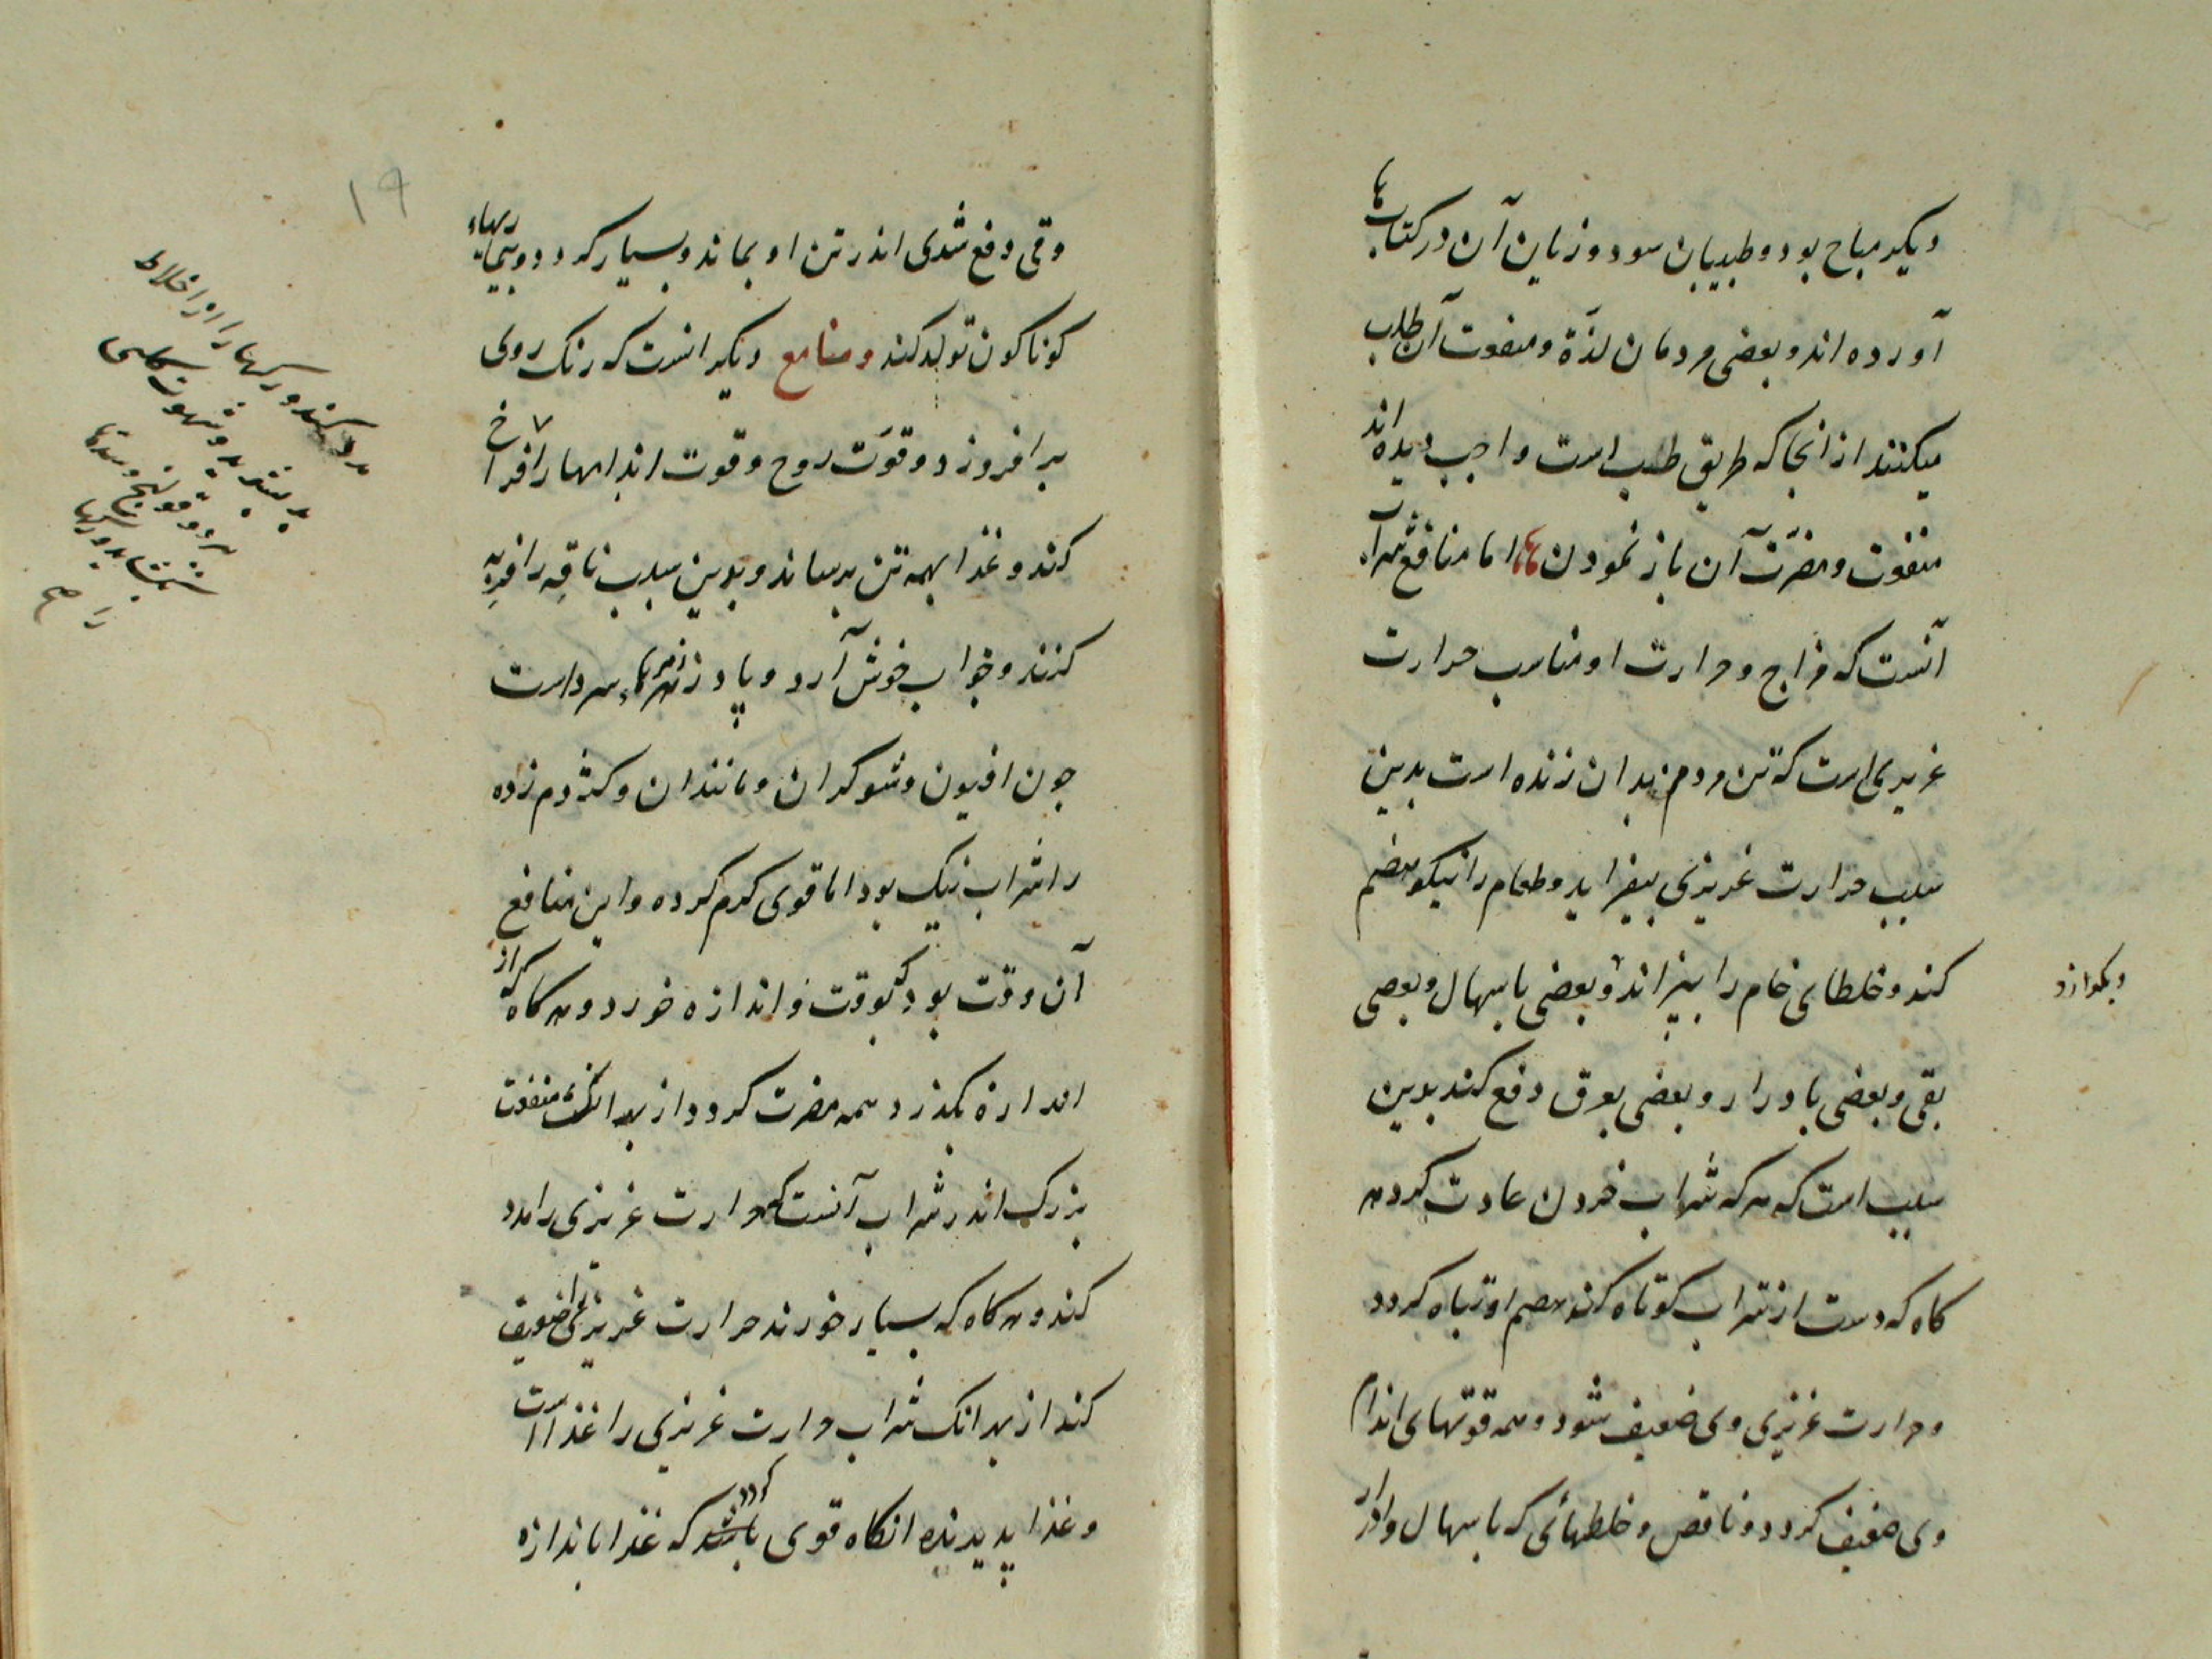 دیکر مباح بود و طبیبان سود و زیان آن در کتابها
آورده اند و بعضی مردمان لذّة و منفعت آن طلب
میکنند از انجا که طریق طب است واجب دیده اند
منفعت و مضرّت آن باز نمودن اما منافع شراب
آنست که مزاج و حرارت او مناسب حرارت
غریزی است که تن مردم بدان زنده است بدین
سبب حرارت غریزی بیفزاید و طعام را نیکو هضم
کند و خلطای خام را بپزاند و بعضی باسهال و بعضی
وبکوارد
بقی و بعضی بادرار و بعضی بعرق دفع کند بدین
سبب است که هر که شراب خوردن عادت کرده
کاه که دست از شراب کوتاه کند هضم او تباه کردد
و حرارت غریزی وی ضعیف شود و همه قوتهای اندام
وی ضعیف کردد و ناقص و خلطهائی که باسهال و ادرار
۱۹
وقی دفع شدی اندر تن او بماند و بسیار کردد و بیماریهاء
کوناکون تولد کند و منافع دیکر انست که رنک روی
برافروزد و قوّت روح و قوت اندامها را فراخ
کند و غذا بهمه تن برساند و بدین سبب ناقِه را فربِه
کنند و خواب خوش آرد و پادزهر زهرهاء سرد است
چون افیون و شوکران و مانند ان و کژدم زده
را شراب نیک بود اما قوی کرم کرده و این منافع
آن وقت بود که بوقت و اندازه خورد و هرکاه که از
اندازه بکذرد همه مضرت کردد از بهر انک منفعت
بزرک اندر شراب آنست که حرارت غریزی را مدد
کند و هرکاه که بسیار خورند حرارت غریزی را ضعیف
کند از بهر انک شراب حرارت غریزی را غذا است
و غذا پدیرنده انکاه قوی باشد کردد که غذا باندازه
کند و رکها را از اخلاط
و شهوت کلبی
ببرد و قولنج و سدها
بکشاید و رکها
را صح